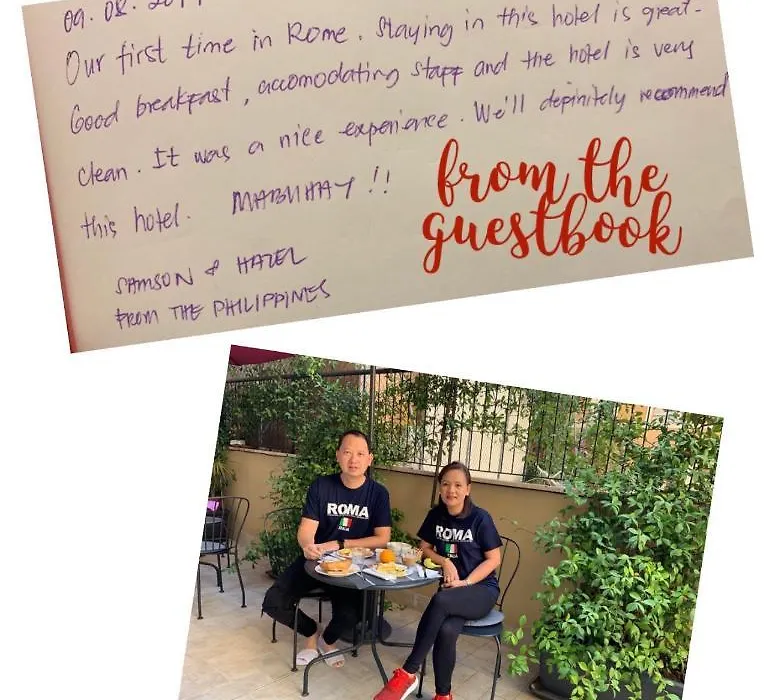 09. 08. 201
Our first time in Rome. Staying in this hotel is great.
Good breakfast, accomodating staff and the hotel is very
clean. It was a nice experience. We'll definitely recommend
this hotel. MABUHAY !!
SAMSON & HAZEL
FROM THE PHILIPPINES
from the
guestbook
ROMA
ROMA